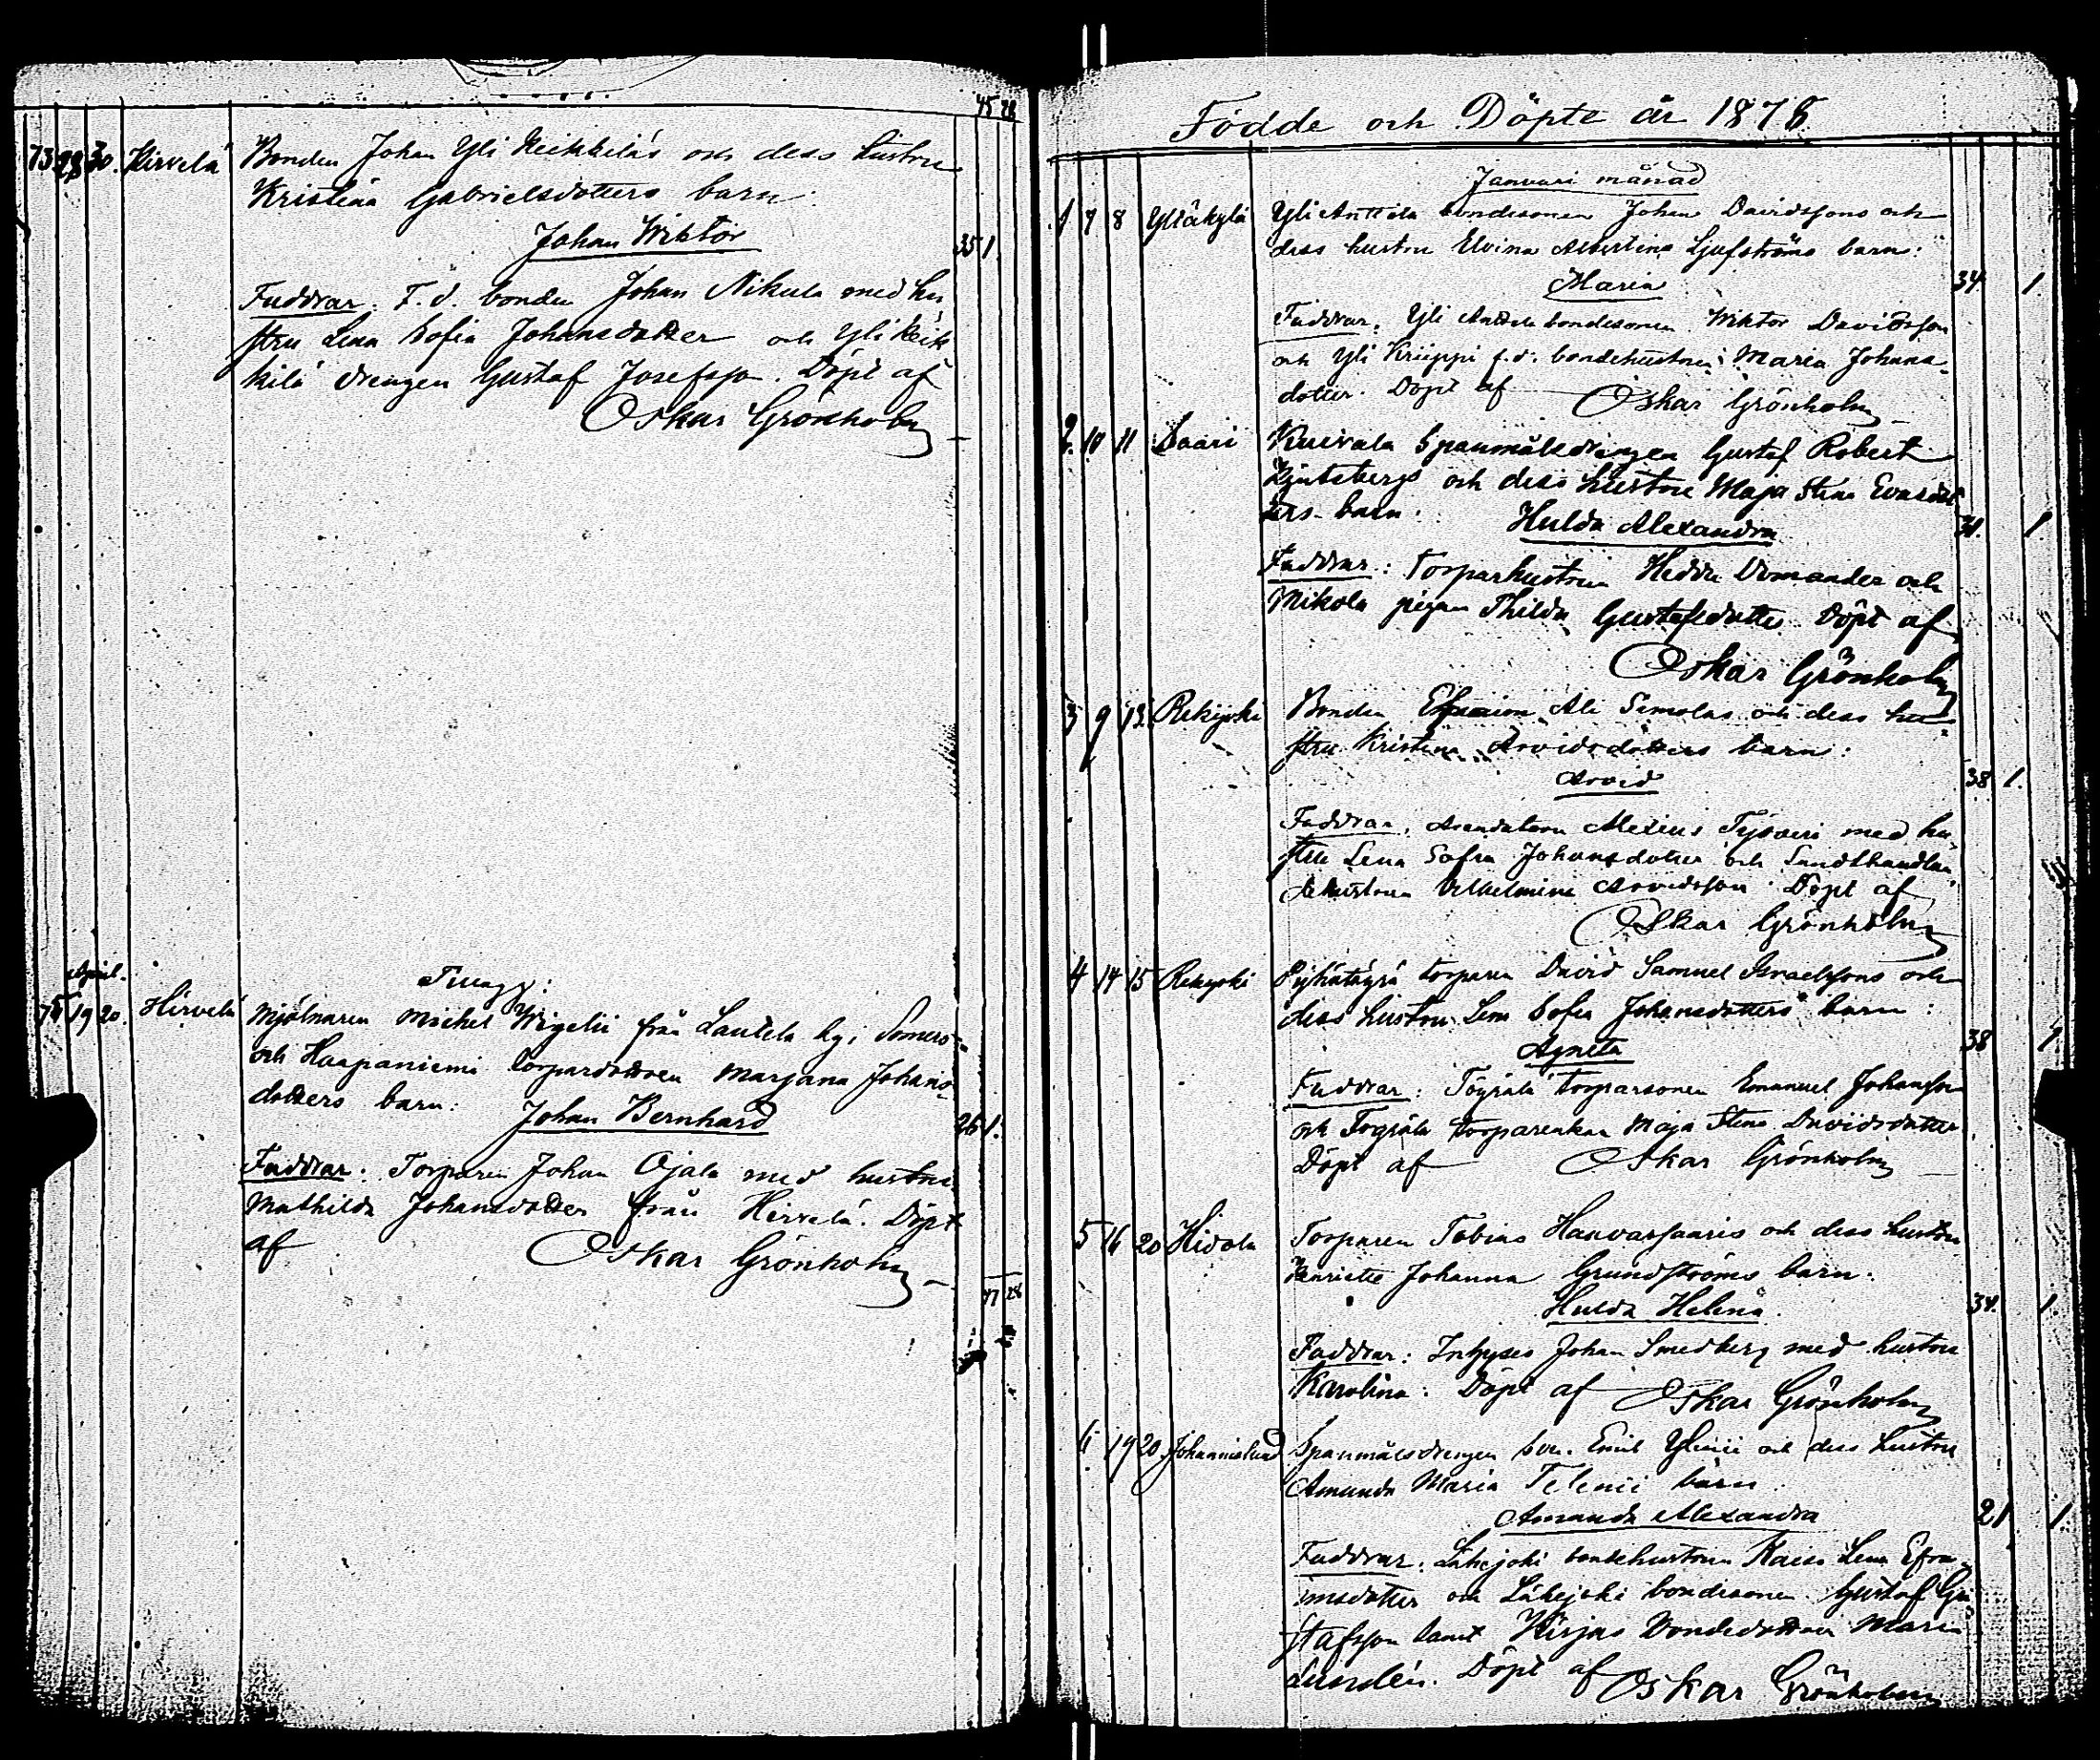 45 28
73 28 30. Hirvelä Bonden Johan Yli Keikkiläs och dess hustru
Kristina Gabrielsdotters barn:
Johan Wiktor 35 1
Faddrar: F.d. bonden Johan Nikula med hu
stru Lena Sofia Johansdotter och Yli Keik
kilä drengen Gustaf Josefsson. Döpt af
Oskar Grönholm
Tillägg:
April.
74 19 20. Hirvelä Mjölnaren Michel Wigelii från Lautela by i Somero
och Haapaniemi torpardottren Marjana Johans
dotters barn: Johan Bernhard 26 1.
Faddrar: Torparen Johan Ojala med hustru
Mathilda Johansdotter från Hirvelä. Döpt
af Oskar Grönholm
47 28
Födde och Döpte år 1878
Januari månad
1 7 8 Yliäkylä Yli Anttila bondesonen Johan Davidssons och
dess hustru Elvina Albertina Ljufströms barn:
Maria 34. 1.
Faddrar: Yli Anttila bondesonen Wiktor Davidsson
och Yli Kriippi f.d. bondehustrun Maria Johans
dotter. Döpt af Oskar Grönholm
2. 10 11 Saari Kuivala Spanmålsdrengen Gustaf Robert
och dess hustru Maja Stina Evasdot
ters barn: Hulda Alexandra 31. 1.
Faddrar: Torparhustrun Hedda Domander och
Mikola pigan Thilda Gustafsdotter Döpt af
Oskar Grönholm
3 9 13. Rekijoki Bonden Efraim Ali Simolas och dess hu
stru Kristina Arvidsdotters barn:
Arvid 38 1.
Faddrar: Arendatorn Alexius Tysveri med hu
stru Lena Sofia Johansdotter och Landthandlar
hustrun Vilhelmina Arvidsson. Döpt af
Oskar Grönholm
4 14 15 Rekijoki torparen David Samuel Israelssons och
dess hustru Lena Sofia Johansdotters barn:
Agneta 38 1
Faddrar: torparsonen Emanuel Johansson
och torparenkan Maja Stina Davidsdotter.
Döpt af Oskar Grönholm
5 16 20 Hidola Torparen Tobias och dess hustru
Henriette Johanna Grundströms barn:
Hulda Helena 34. 1.
Faddrar: Inhyses Johan Smedberg med hustru
Karolina. Döpt af Oskar Grönholm
6 19 20 Johannislund Spanmålsdrengen Emil och dess hustru
Amanda Maria Telenii barn
Amanda Alexandra 21 1.
Faddrar: Lähejoki bondehustrun Kaisa Lena Efra
imsdotter och Lähejoki bondesonen Gustaf Gu
stafsson samt bondedottren Maria
Lundén. Döpt af Oskar Grönholm